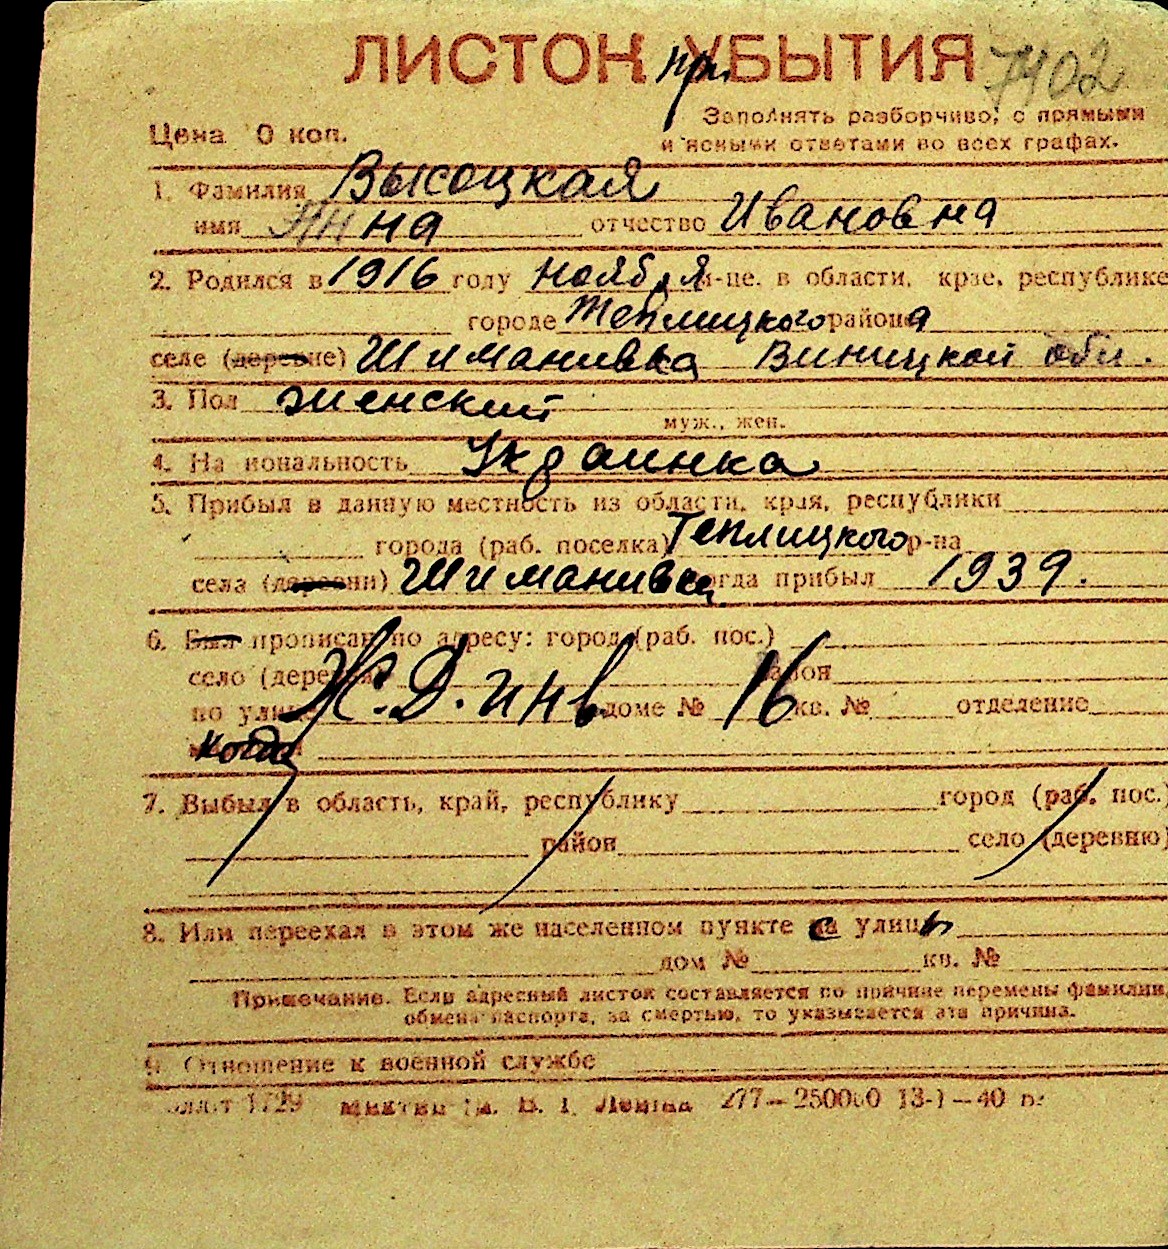 ЛИСТОК при УБЫТИЯ 7402
Цена 0 коп.
Заполнять разборчиво, с прямыми
и ясными ответами во всех графах.
1. Фамилия Высоцкая
имя Анна отчество Ивановна
2. Родился в 1916 году ноября м-це. в области, крае, республике
городе Теплицкого района
селе (деревне) Шиманивка Виницкой обл.
3. Пол женский
муж., жен.
4. Национальность Украинка
5. Прибыл в данную местность из области, края, республики
города (раб. поселка) Теплицкого р-на
села (деревни) Шиманивка когда прибыл 1939.
6. Был прописан по адресу: город (раб. пос.)
село (деревня) район
по улице Ж.Д. инв доме № 16 кв. № отделение
когда
7. Выбыл в область, край, республику город (раб. пос.)
район село (деревню)
8. Или переехал в этом же населенном пункте с улицы
дом № кв. №
Примечание. Если адресный листок составляется по причине перемены фамилии,
обмена паспорта, за смертью, то указывается эта причина.
9. Отношение к военной службе
1729 им. В. І. Леніна 277—250000 13-I—40 р.